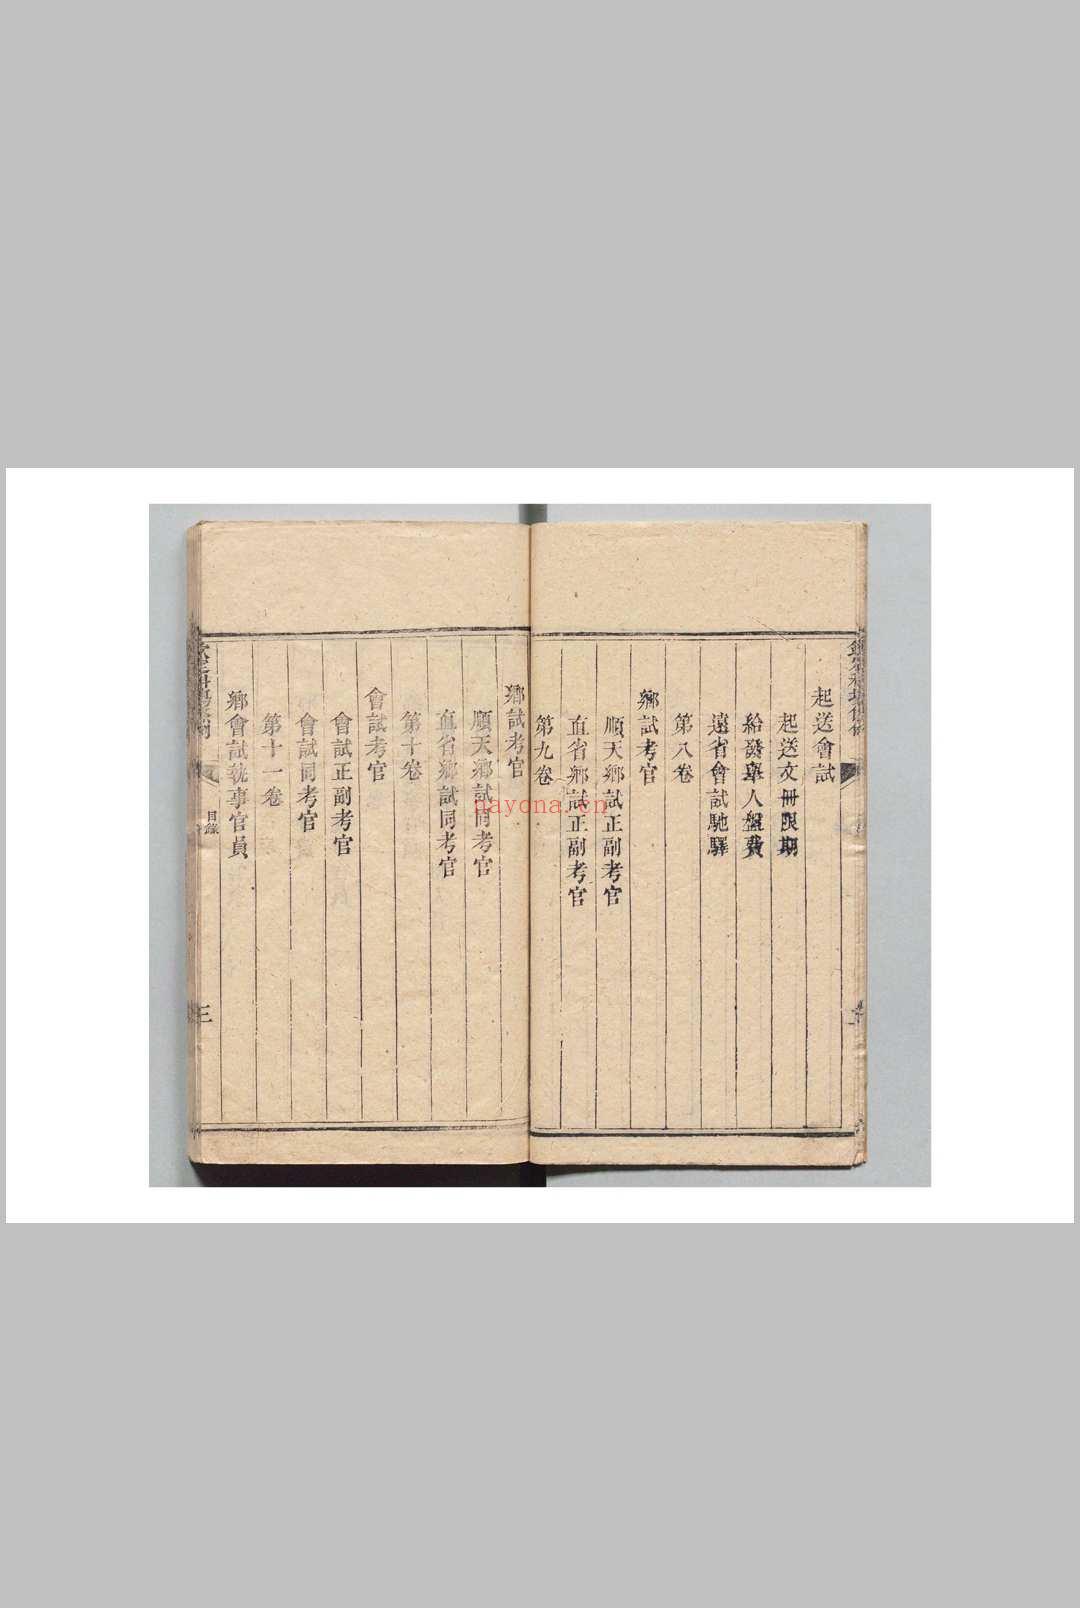 起送會試
起送文冊限期
給發舉人盤費
遠省會試馳驛
第八卷
鄉試考官
順天鄉試正副考官
直省鄉試正副考官
第九卷
鄉試考官
順天鄉試同考官
直省鄉試同考官
第十卷
會試考官
會試正副考官
會試同考官
第十一卷
鄉會試執事官員
目錄
三
nayona.cn